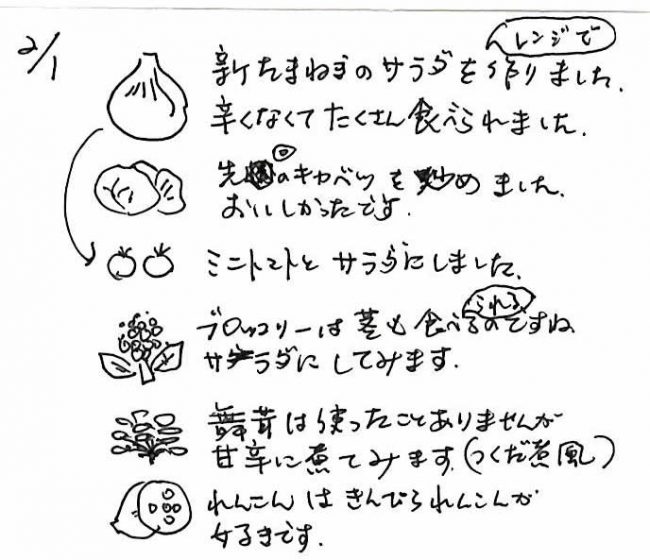 2/1
レンジで
新たまねぎのサラダを作りました。
辛くなくてたくさん食べられました。
先のキャベツを炒めました。
おいしかったです。
ミニトマトとサラダにしました。
られる
ブロッコリーは茎も食べるのですね
サラダにしてみます。
舞茸は使ったことありませんが
甘辛に煮てみます。(つくだ煮風)
れんこんはきんぴられんこんが
好きです。